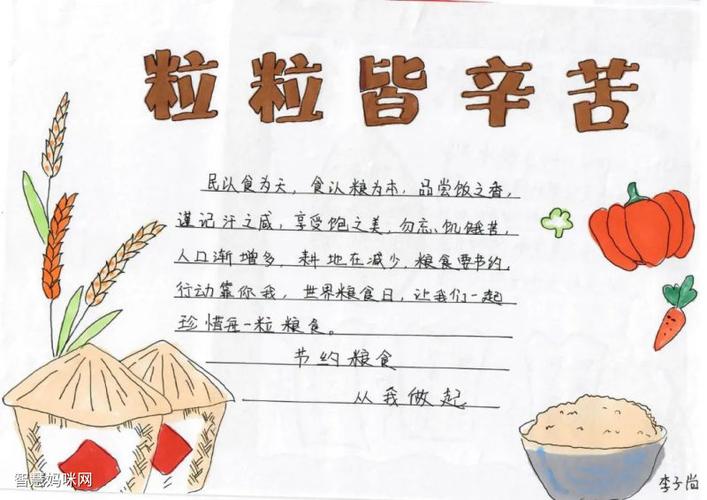 粒粒皆辛苦
民以食为天，食以粮为本，品尝饭之香，
谨记汗之咸，享受饱之美，勿忘饥饿苦，
人口渐增多，耕地在减少，粮食要节约，
行动靠你我，世界粮食日，让我们一起
珍惜每一粒粮食。
节约粮食
从我做起
智慧妈咪网
李子尚